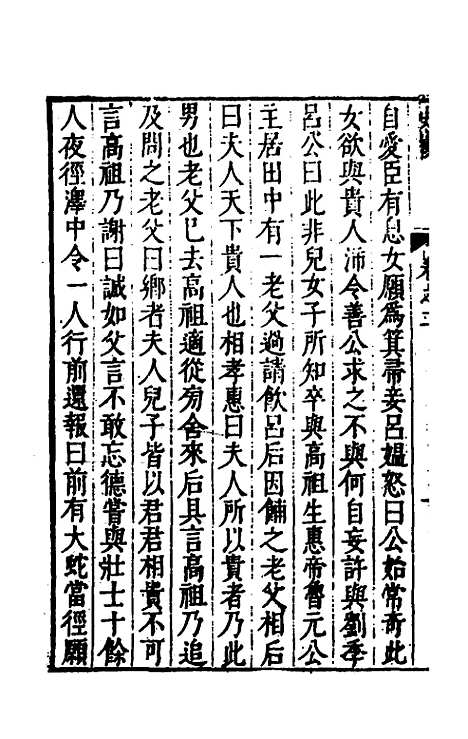 自愛臣有息女願為箕帚妾呂媼怒曰公始常奇此
女欲與貴人沛令善公求之不與何自妄許與劉季
呂公曰此非兒女子所知卒與高祖生惠帝魯元公
主居田中有一老父過請飲呂后因餔之老父相后
曰夫人天下貴人也相孝惠曰夫人所以貴者乃此
男也老父已去高祖適從旁舍來后具言高祖乃追
及問之老父曰鄉者夫人兒子皆以君君相貴不可
言高祖乃謝曰誠如父言不敢忘德嘗與壯士十餘
人夜徑澤中令一人行前還報曰前有大蛇當徑願